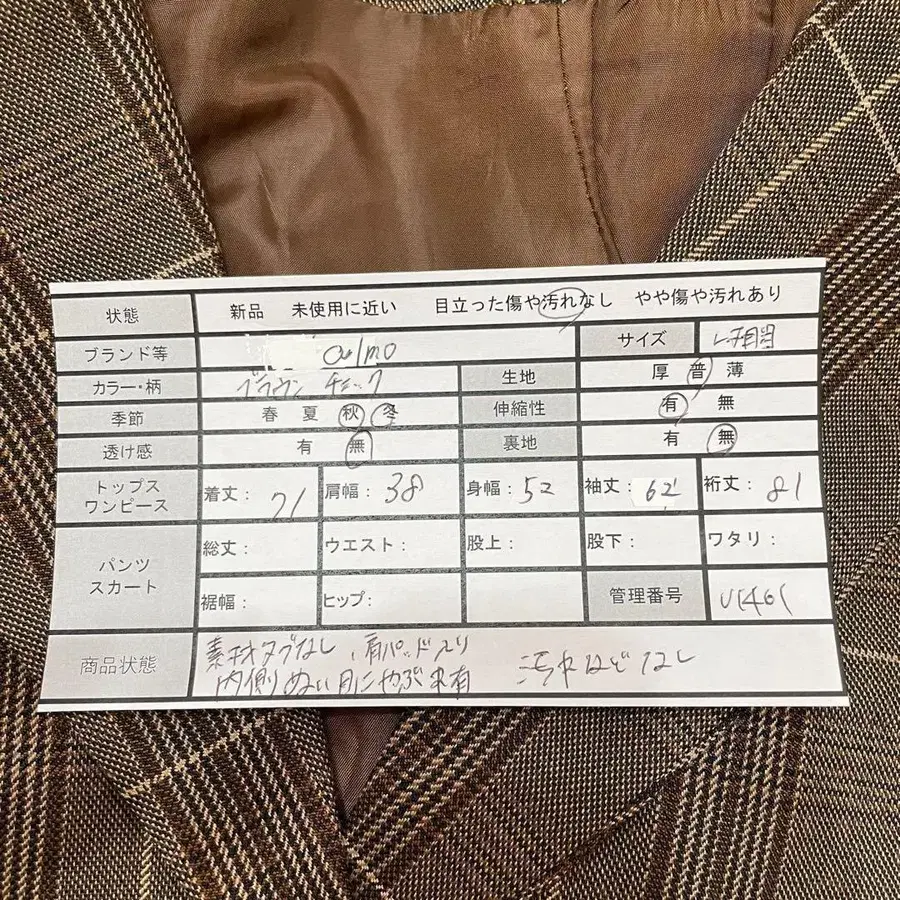 状態 新品 未使用に近い 目立った傷や汚れなし やや傷や汚れあり
ブランド等 サイズ L相当
カラー・柄 ブラウン チェック 生地 厚 普 薄
季節 春 夏 秋 冬 伸縮性 有 無
透け感 有 無 裏地 有 無
トップス
ワンピース
着丈: 71 肩幅: 38 身幅: 52 袖丈: 62 裄丈: 81
パンツ
スカート
総丈: ウエスト: 股上: 股下: ワタリ:
裾幅: ヒップ: 管理番号
商品状態
素材タグなし、肩パッド入り
内側ぬい目にやぶれ有 汚れなどなし